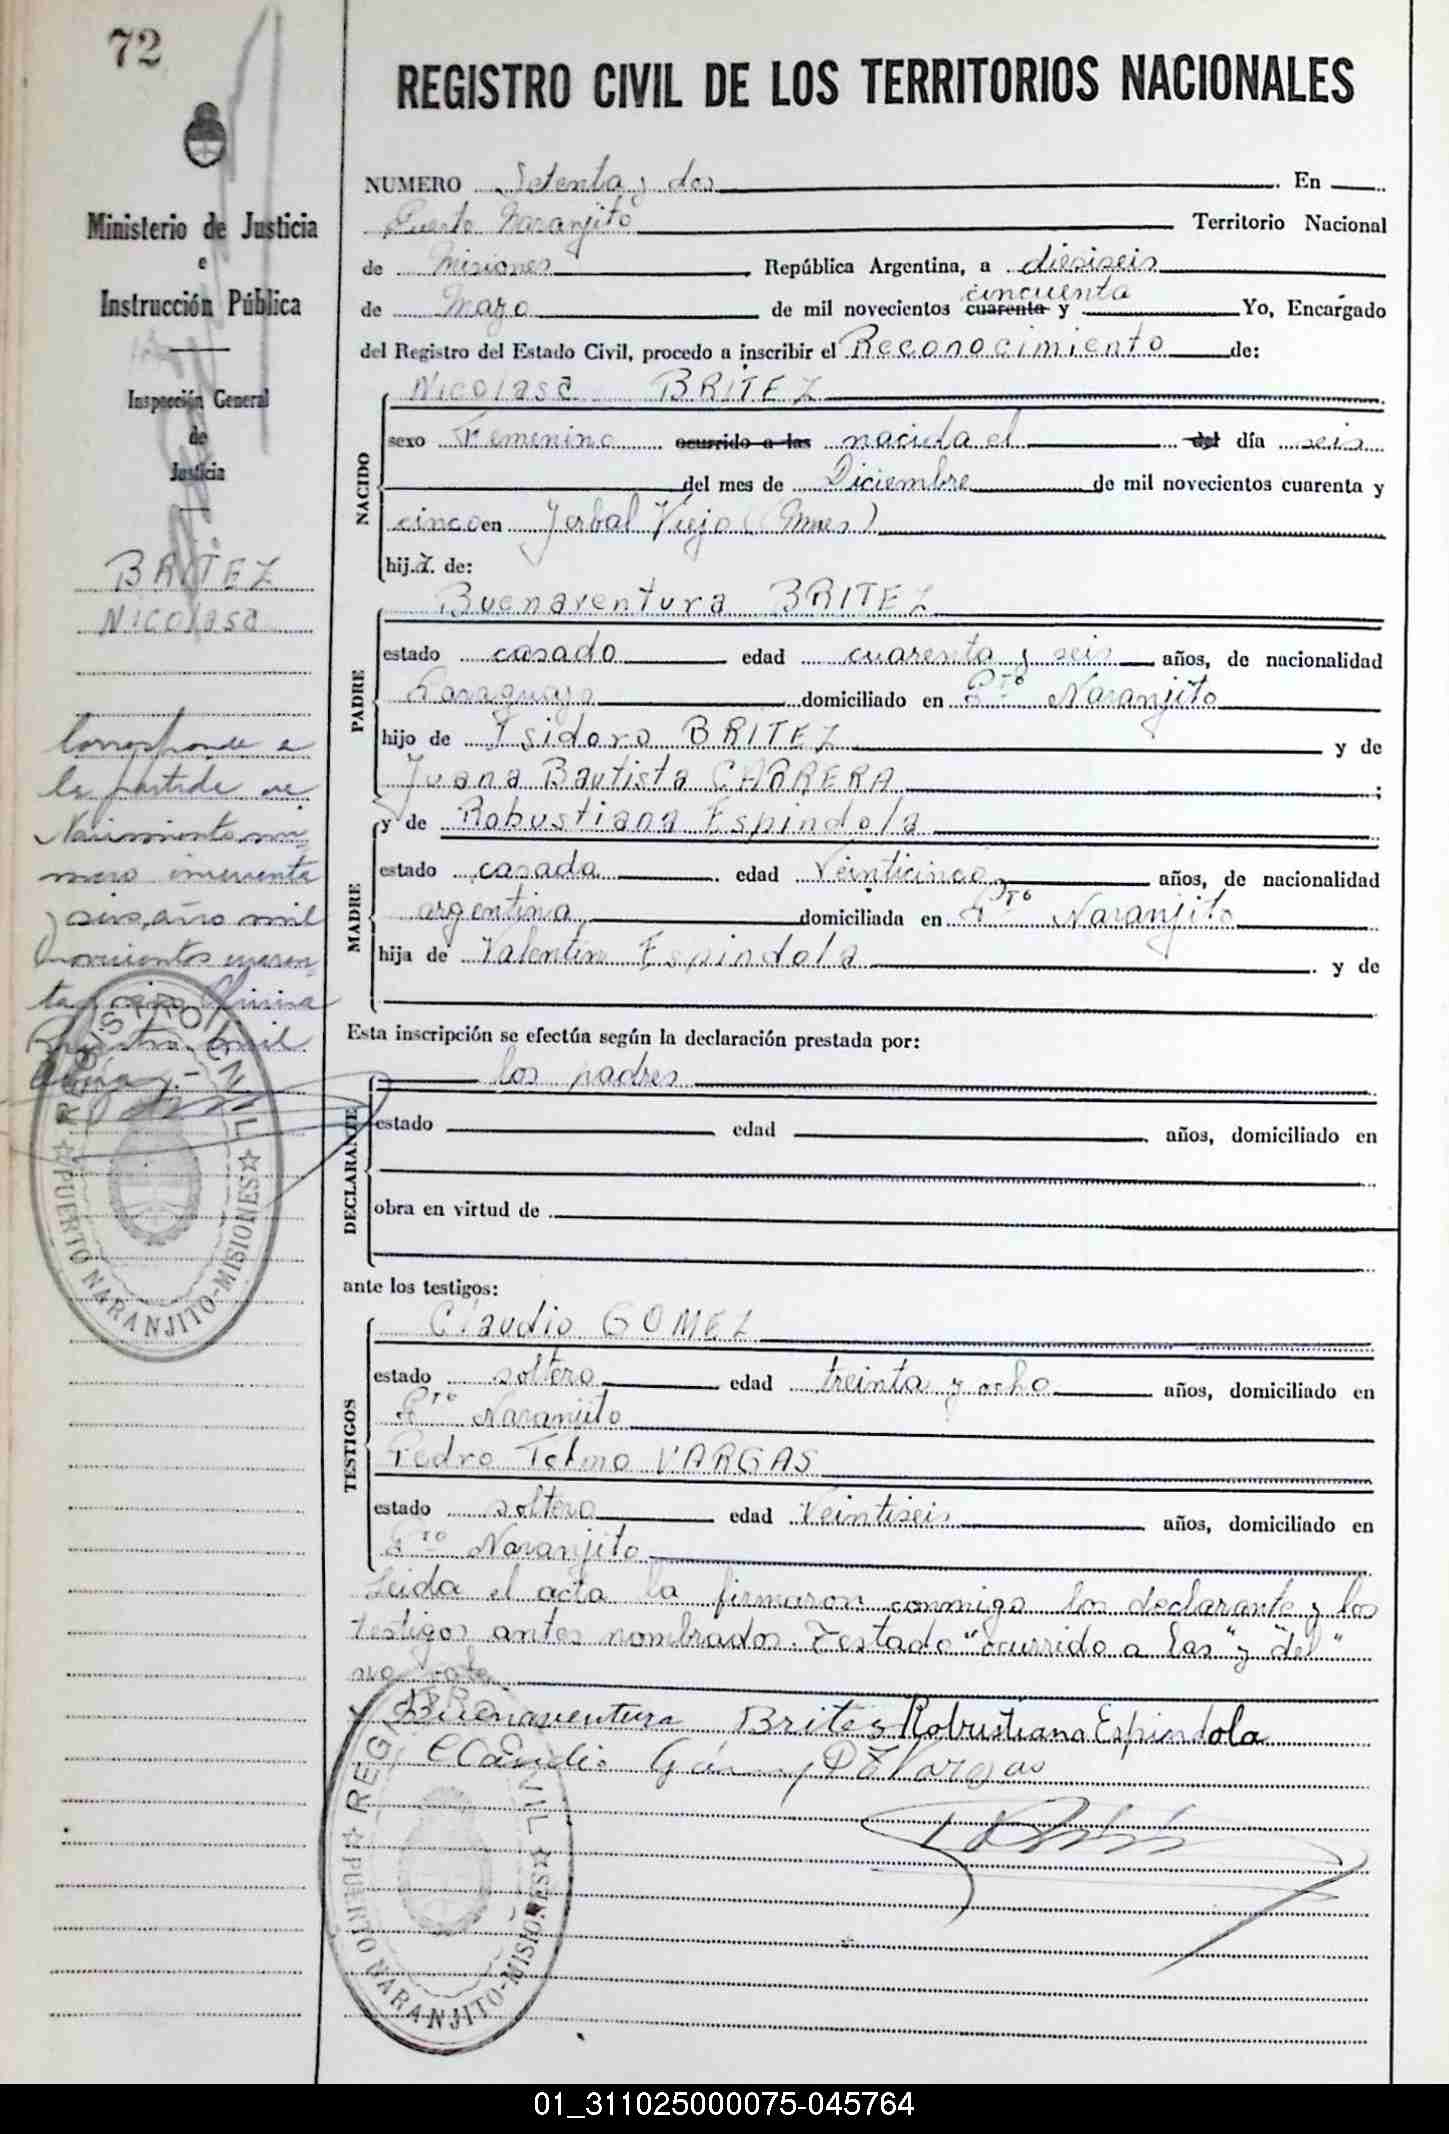 72
REGISTRO CIVIL DE LOS TERRITORIOS NACIONALES
Ministerio de Justicia
e
Instrucción Pública
Inspección General
de
Justicia
BRITEZ
Nicolasa
Corresponde a
la partida de
Nacimiento nú-
mero cincuenta
y seis, año mil
novecientos cuaren-
ta y cinco Oficina
Registro Civil
REGISTRO CIVIL
PUERTO NARANJITO-MISIONES
NUMERO Setenta y dos En
Puerto Naranjito Territorio Nacional
de Misiones República Argentina, a diesiseis
cincuenta
de Mayo de mil novecientos cuarenta y Yo, Encargado
del Registro del Estado Civil, procedo a inscribir el Reconocimiento de:
NACIDO
Nicolasa BRITEZ
sexo Femenino ocurrido a las nacida el del día seis
del mes de Diciembre de mil novecientos cuarenta y
cinco en Yerbal Viejo (Mnes)
hija de:
PADRE
Buenaventura BRITEZ
estado casado edad cuarenta y seis años, de nacionalidad
Paraguayo domiciliado en Pto Naranjito
hijo de Isidoro BRITEZ y de
Juana Bautista CABRERA ;
MADRE
y de Robustiana Espindola
estado casada edad Veinticinco años, de nacionalidad
argentina domiciliada en Pto Naranjito
hija de Valentin Espindola y de
Esta inscripción se efectúa según la declaración prestada por:
DECLARANTE
los padres
estado edad años, domiciliado en
obra en virtud de
ante los testigos:
TESTIGOS
Claudio GOMEZ
estado soltero edad treinta y ocho años, domiciliado en
Pto Naranjito
Pedro Telmo VARGAS
estado soltero edad Veintiseis años, domiciliado en
Pto Naranjito
Leida el acta la firmaron conmigo los declarante y los
testigos antes nombrados. Testado "ocurrido a las" y "del"
no vale
Buenaventura Brites Robustiana Espindola
Claudio Gómez P T Vargas
REGISTRO CIVIL
PUERTO NARANJITO-MISIONES
01_311025000075-045764